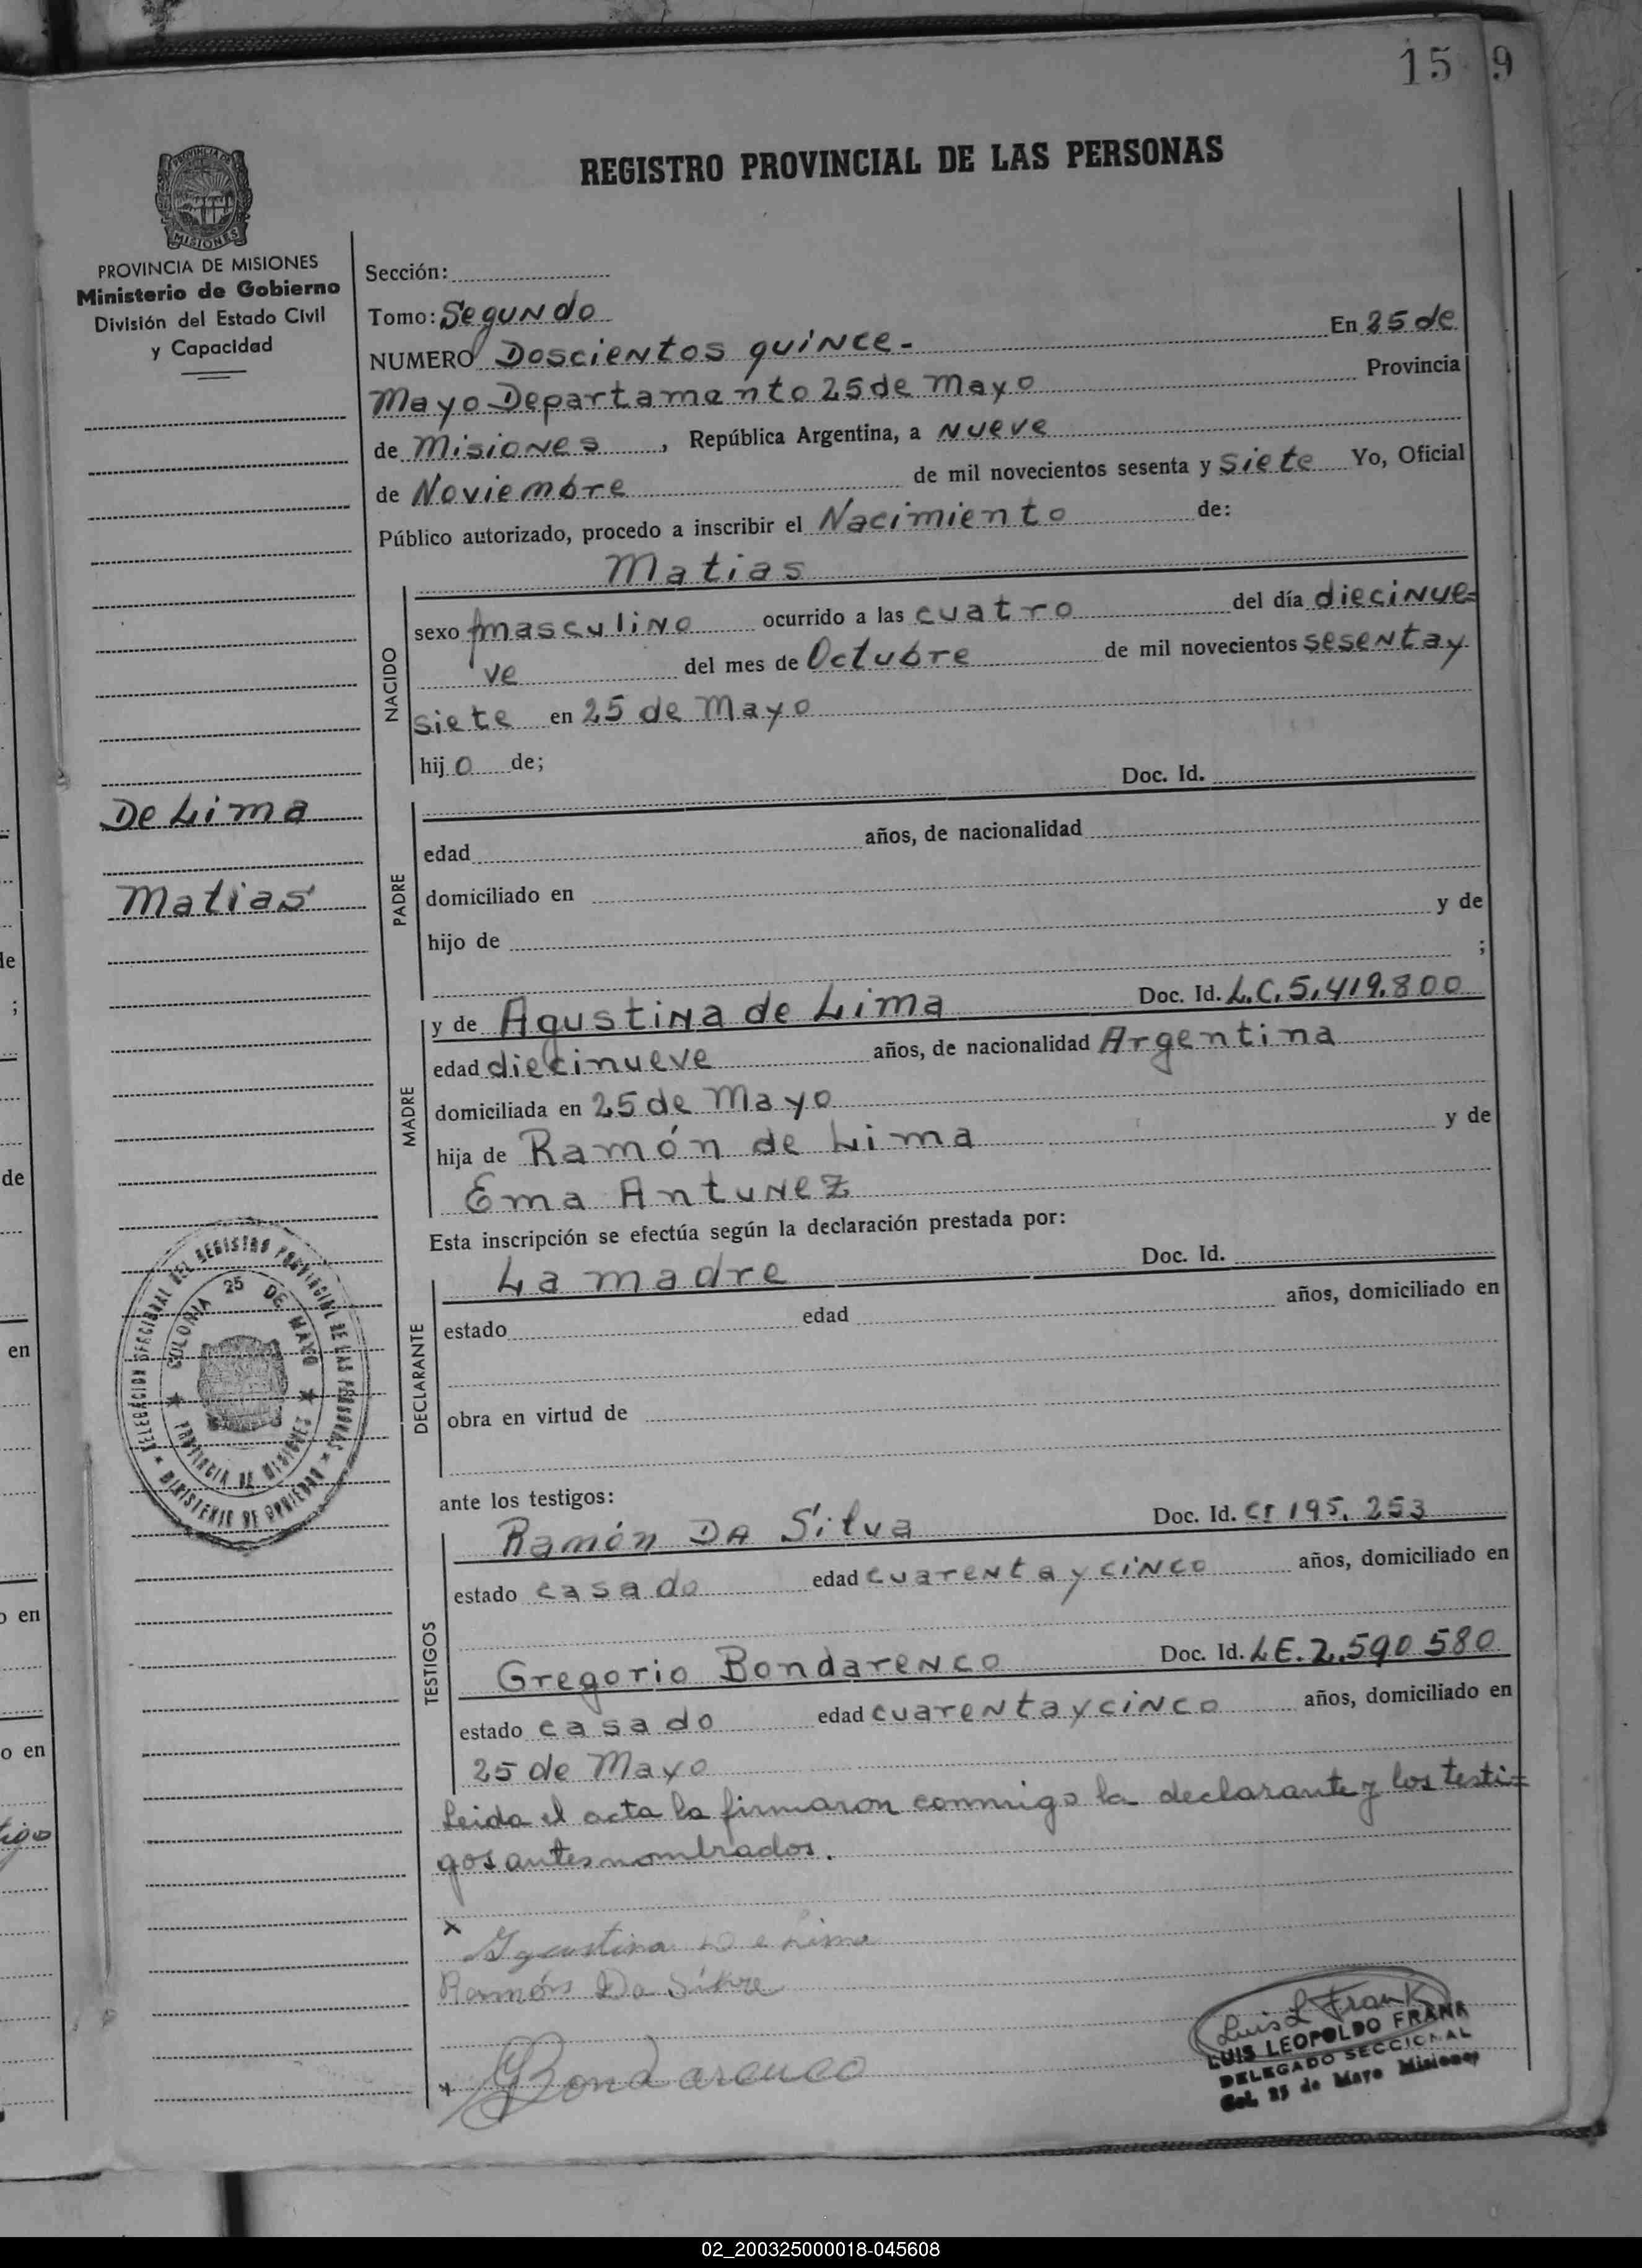 15 9
REGISTRO PROVINCIAL DE LAS PERSONAS
PROVINCIA DE MISIONES
Ministerio de Gobierno
División del Estado Civil
y Capacidad
De Lima
Matias
DELEGACION SECCIONAL DEL REGISTRO PROVINCIAL DE LAS PERSONAS
MINISTERIO DE GOBIERNO
COLONIA 25 DE MAYO
PROVINCIA DE MISIONES
Sección:
Tomo: Segundo
NUMERO Doscientos quince.- En 25 de
Mayo Departamento 25 de Mayo Provincia
de Misiones, República Argentina, a Nueve
de Noviembre de mil novecientos sesenta y siete Yo, Oficial
Público autorizado, procedo a inscribir el Nacimiento de:
Matias
NACIDO
sexo masculino ocurrido a las cuatro del día diecinue=
ve del mes de Octubre de mil novecientos sesenta y
siete en 25 de Mayo
hijo de;
PADRE
Doc. Id.
edad años, de nacionalidad
domiciliado en
hijo de y de
;
MADRE
y de Agustina de Lima Doc. Id. L.C. 5.419.800
edad diecinueve años, de nacionalidad Argentina
domiciliada en 25 de Mayo
hija de Ramón de Lima y de
Ema Antunez
Esta inscripción se efectúa según la declaración prestada por:
DECLARANTE
La madre Doc. Id.
estado edad años, domiciliado en
obra en virtud de
ante los testigos:
TESTIGOS
Ramón Da Silva Doc. Id. CI 195.253
estado casado edad cuarenta y cinco años, domiciliado en
Gregorio Bondarenco Doc. Id. L.E. 2.590.580
estado casado edad cuarenta y cinco años, domiciliado en
25 de Mayo
Leida el acta la firmaron conmigo la declarante y los testi=
gos antes nombrados.
x Agustina De Lima
Ramón Da Silva
x GBondarenco
Luis L Frank
LUIS LEOPOLDO FRANK
DELEGADO SECCIONAL
Col. 25 de Mayo Misiones
de
;
de
en
o en
o en
tigo
02_200325000018-045608